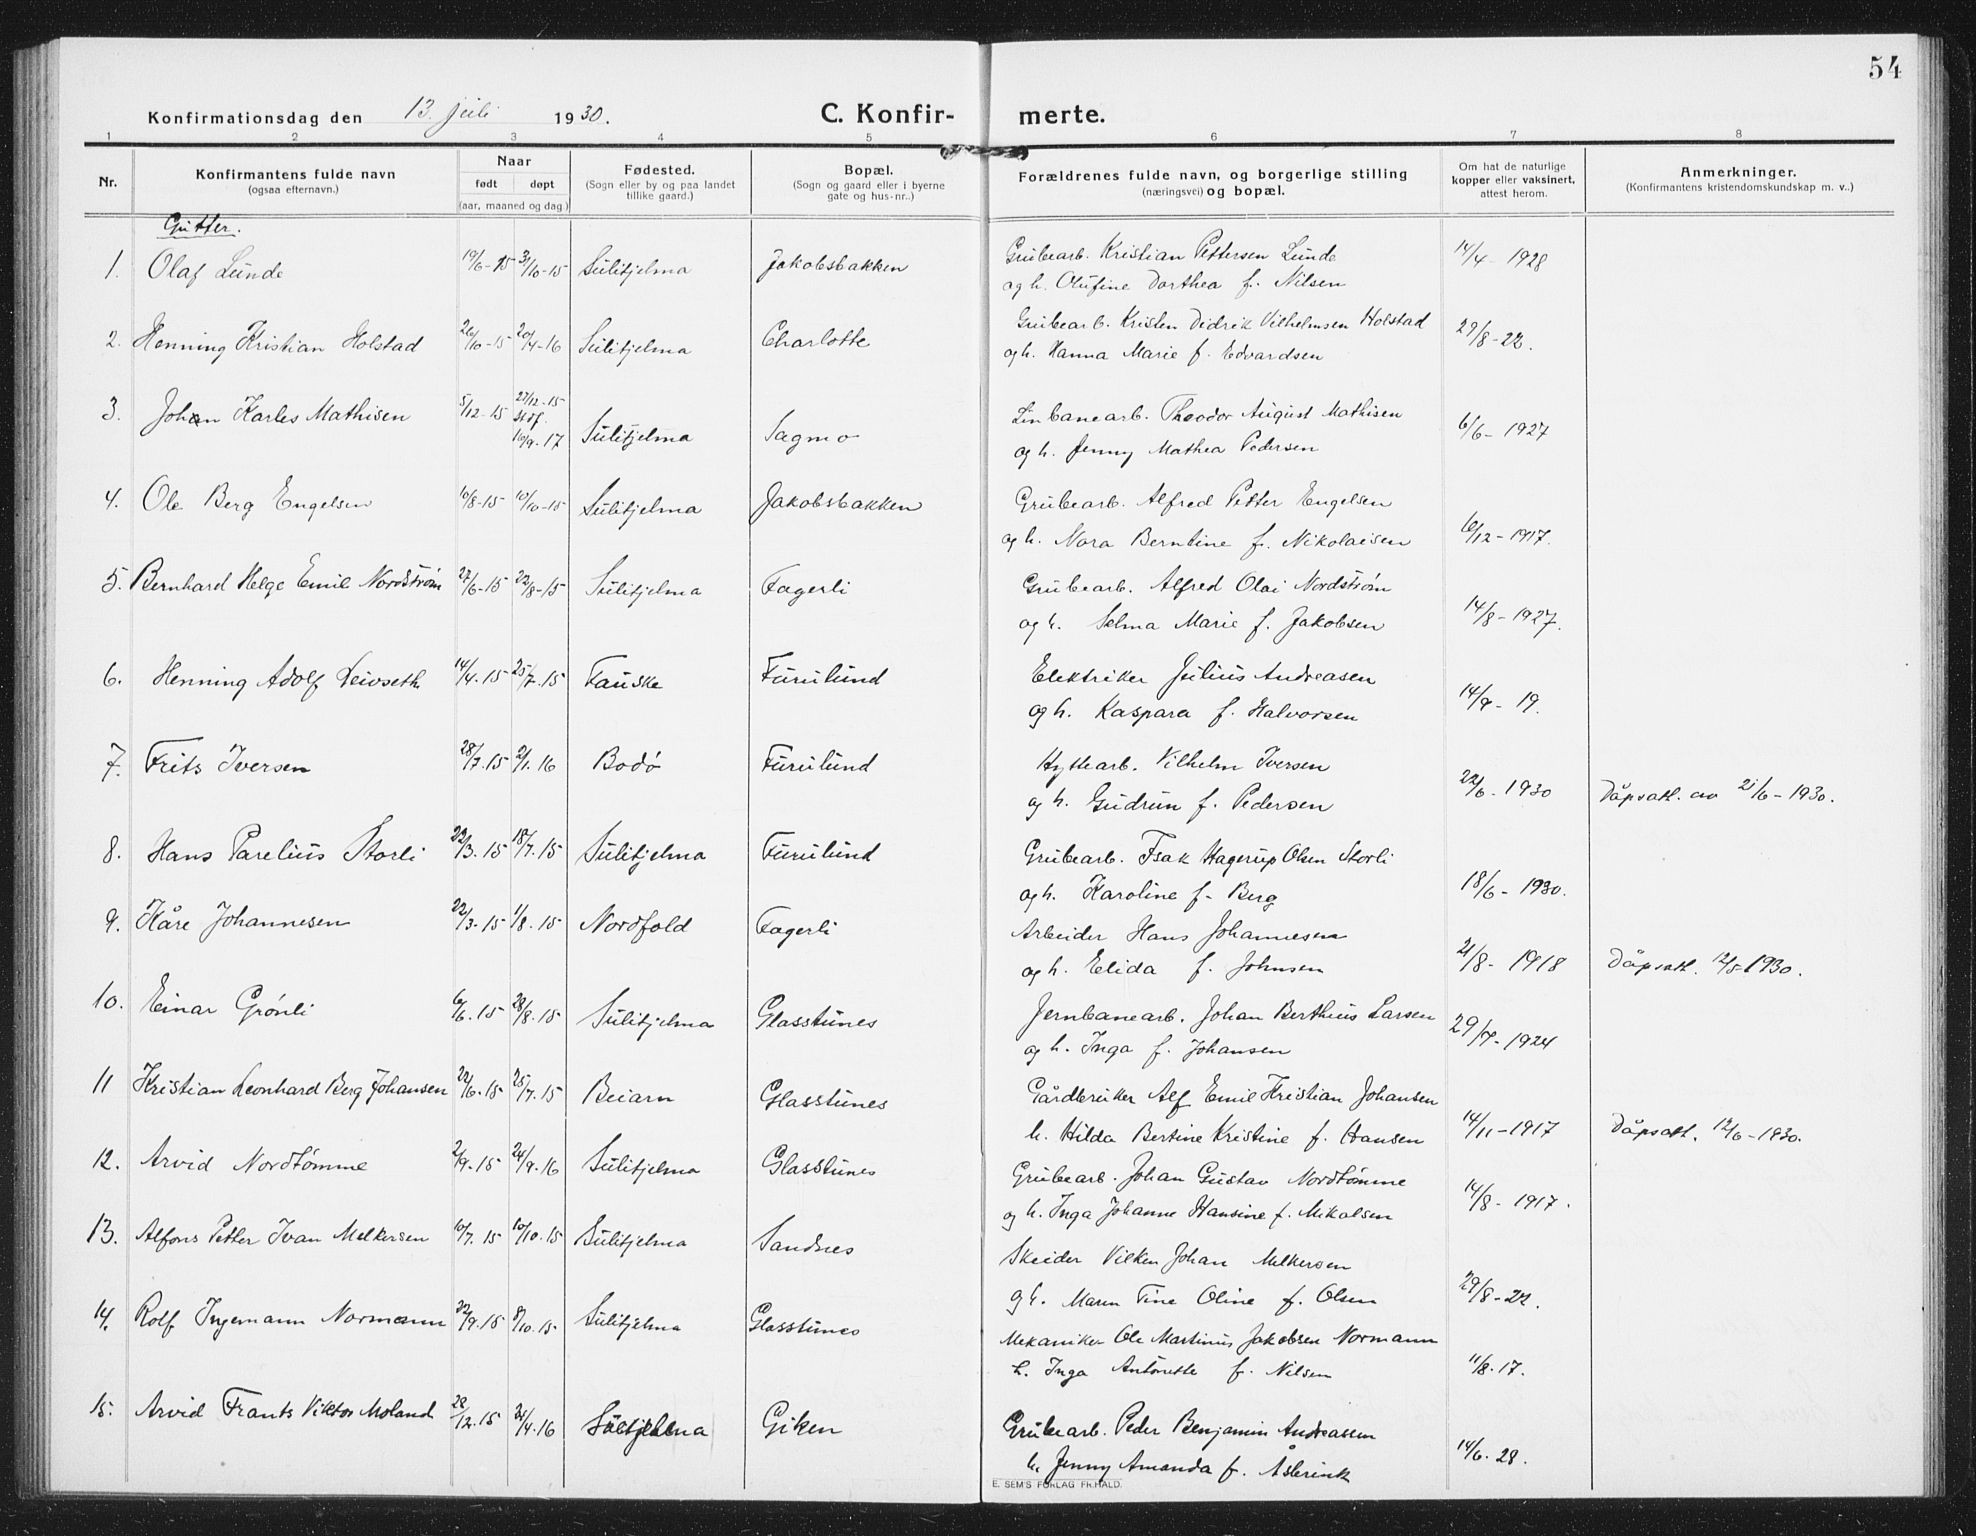 54
Konfirmationsdag den 13. juli 1930. C. Konfir- merte.
1 2 3 4 5 6 7 8
Nr. Konfirmantens fulde navn (ogsaa efternavn.) Naar født døpt (aar, maaned og dag.) Fødested. (Sogn eller by og paa landet tillike gaard.) Bopæl. (Sogn og gaard eller i byerne gate og hus-nr..) Forældrenes fulde navn, og borgerlige stilling (næringsvei) og bopæl. Om hat de naturlige kopper eller vaksinert, attest herom. Anmerkninger. (Konfirmantens kristendomskundskap m. v..)
Gutter.
1. Olaf Lunde 19/6-15 31/10-15 Sulitjelma Jakobsbakken Grubearb. Kristian Pettersen Lunde 14/4-1928
og h. Olufine Dorthea f. Nilsen
2. Henning Kristian Holstad 26/10-15 20/4-16 Sulitjelma Charlotte Grubearb. Kristen Didrik Vilhelmsen Holstad 29/8-22.
og h. Hanna Marie f. Edvardsen
3. Johan Karles Mathisen 5/12-15 27/12-15 St.f. 16/9-17 Sulitjelma Sagmo Linbanearb. Theodor August Mathisen 6/6-1927
og h. Jenny Mathea Pedersen
4. Ole Berg Engelsen 10/8-15 10/10-15 Sulitjelma Jakobsbakken Grubearb. Alfred Petter Engelsen
og h. Nora Berntine f. Nikolaisen 6/12-1917.
5. Bernhard Helge Emil Nordstrøm 27/6-15 22/8-15 Sulitjelma Fagerli Grubearb. Alfred Olai Nordstrøm
og h. Selma Marie f. Jakobsen 14/8-1927.
6. Henning Adolf Leivseth 14/4.15 25/7.15 Fauske Furulund Elektriker Julius Andreasen
og h. Kaspara f. Halvorsen 14/9-19.
7. Frits Iversen 28/7.15 2/1.16 Bodø Furulund Hyttearb. Vilhelm Iversen
og h. Gudrun f. Pedersen 22/6-1930 Dåpsatt. av 21/6-1930.
8. Hans Parelius Storli 23/3.15 18/7.15 Sulitjelma Furulund Grubearb. Isak Hagerup Olsen Storli
og h. Karoline f. Berg 18/6-1930.
9. Kåre Johannesen 22/3.15 1/8.15 Nordfold Fagerli Arbeider Hans Johannesen
og h. Elida f. Johnsen 21/8-1918 Dåpsatt. 12/5-1930.
10. Einar Grønli 6/6.15 28/8.15 Sulitjelma Glasstunes Jernbanearb. Johan Berthius Larsen
og h. Inga f. Johansen 29/9-1924
11 Kristian Leonhard Berg Johansen 22/6.15 25/7.15 Beiarn Glasstunes Gårdbruker Alf Emil Kristian Johansen
h. Hilda Bertine Kristine f. Hansen 14/11-1917 Dåpsatt. 12/6-1930.
12. Arvid Nordtømme 2/9.15 24/9.16 Sulitjelma Glasstunes Grubearb. Johan Gustav Nordtømme
og h. Inga Johanne Hansine f. Mikalsen 14/8-1917.
13. Alfons Petter Ivan Melkersen 10/7.15 10/10.15 Sulitjelma Sandnes Skeider Vilken Johan Melkersen
og h. Maren Tine Oline f. Olsen 29/8-22.
14. Rolf Ingemann Normann 22/9.15 8/10.15 Sulitjelma Glasstunes Mekaniker Ole Martinus Jakobsen Normann
h. Inga Antonette f. Nilsen 11/8.17.
15. Arvid Frants Viktor Moland 28/12.15 24/4.16 Sulitjelma Giken Grubearb. Peder Benjamin Andreassen
h. Jenny Amanda f. Åsbrink 14/6.28.
E. SEM'S FORLAG FR.HALD.